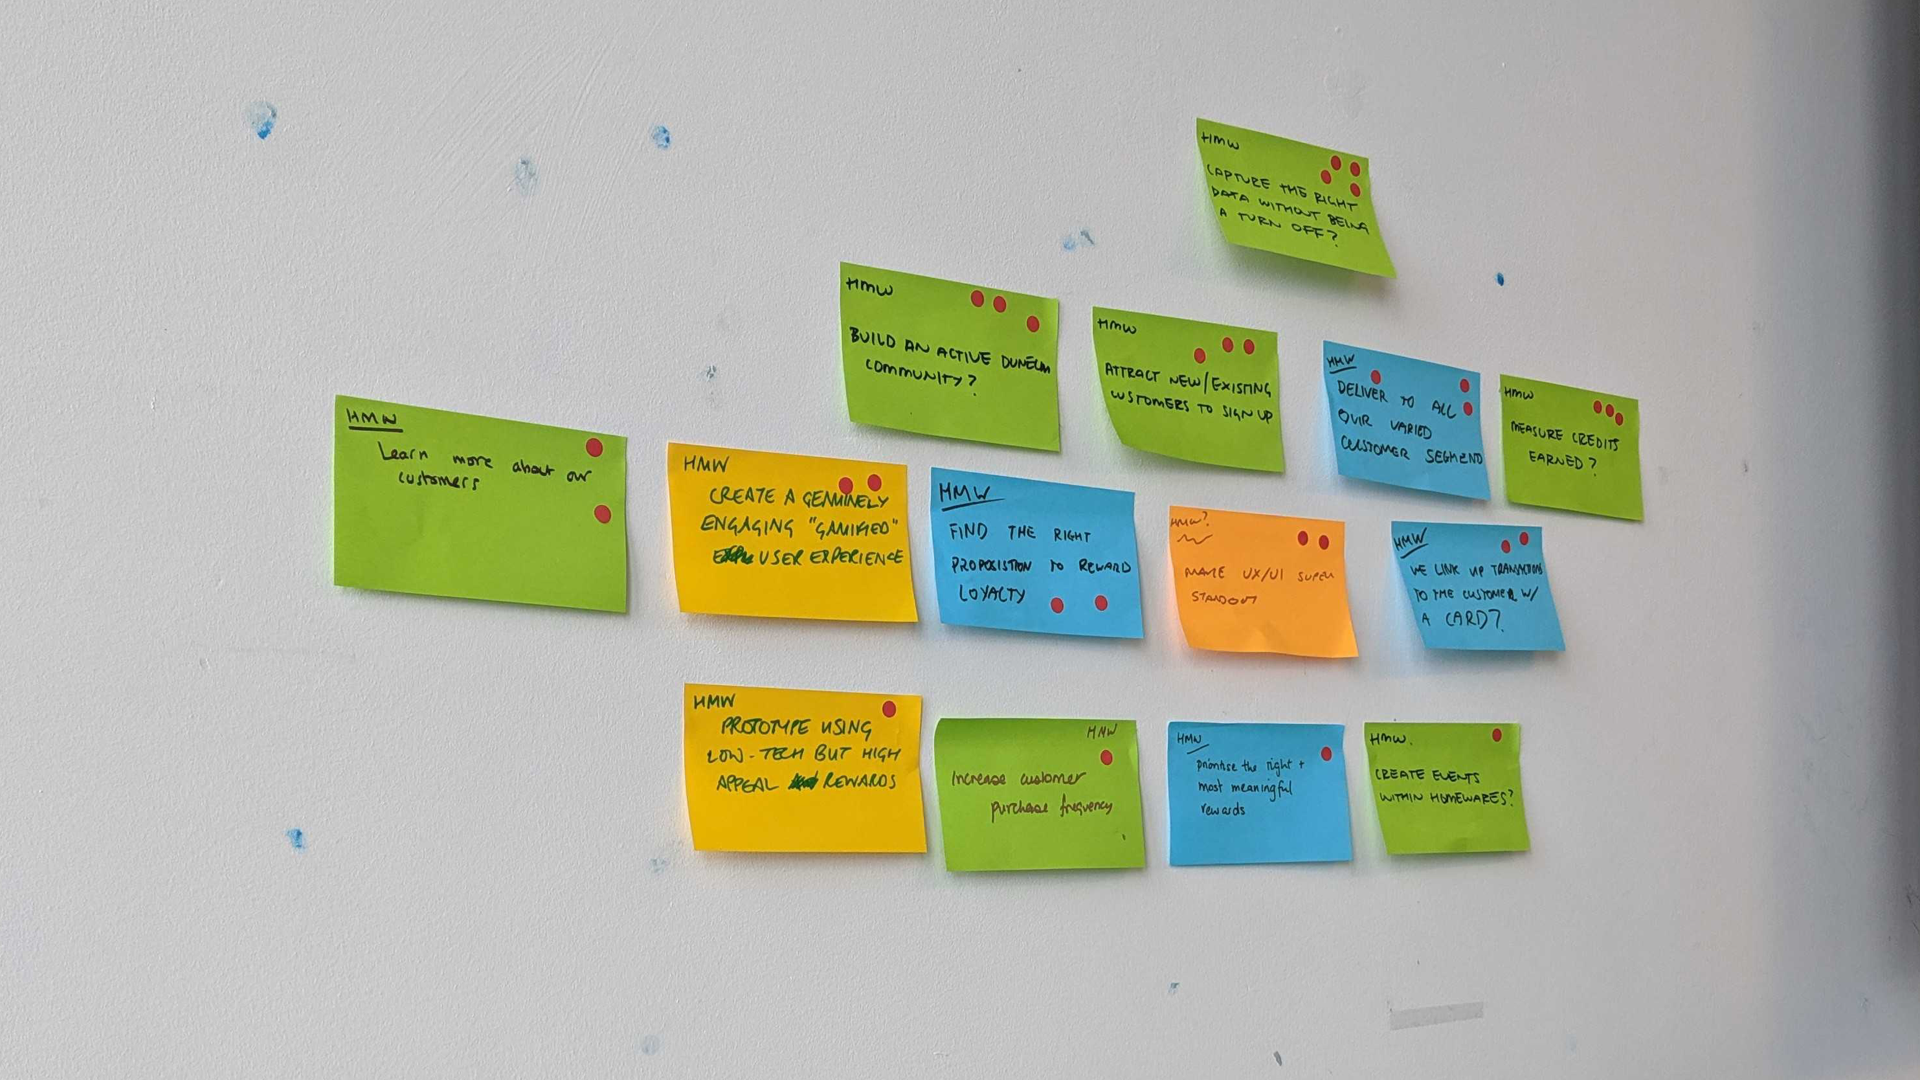 HMW
CAPTURE THE RIGHT
DATA WITHOUT BEING
A TURN OFF?
HMW
BUILD AN ACTIVE DUNELM
COMMUNITY?
HMW
ATTRACT NEW/EXISTING
CUSTOMERS TO SIGN UP
HMW
DELIVER TO ALL
OUR VARIED
CUSTOMER SEGMEND
HMW
MEASURE CREDITS
EARNED?
HMW
Learn more about our
customers
HMW
CREATE A GENUINELY
ENGAGING "GAMIFIED"
USER EXPERIENCE
HMW
FIND THE RIGHT
PROPOSISTION TO REWARD
LOYALTY
HMW?
MAKE UX/UI SUPER
STANDOUT
HMW
WE LINK UP TRANSACTIONS
TO THE CUSTOMER W/
A CARD?
HMW
PROTOTYPE USING
LOW-TECH BUT HIGH
APPEAL REWARDS
HMW
Increase customer
purchase frequency
HMW
prioritise the right +
most meaningful
rewards
HMW.
CREATE EVENTS
WITHIN HOMEWARES?